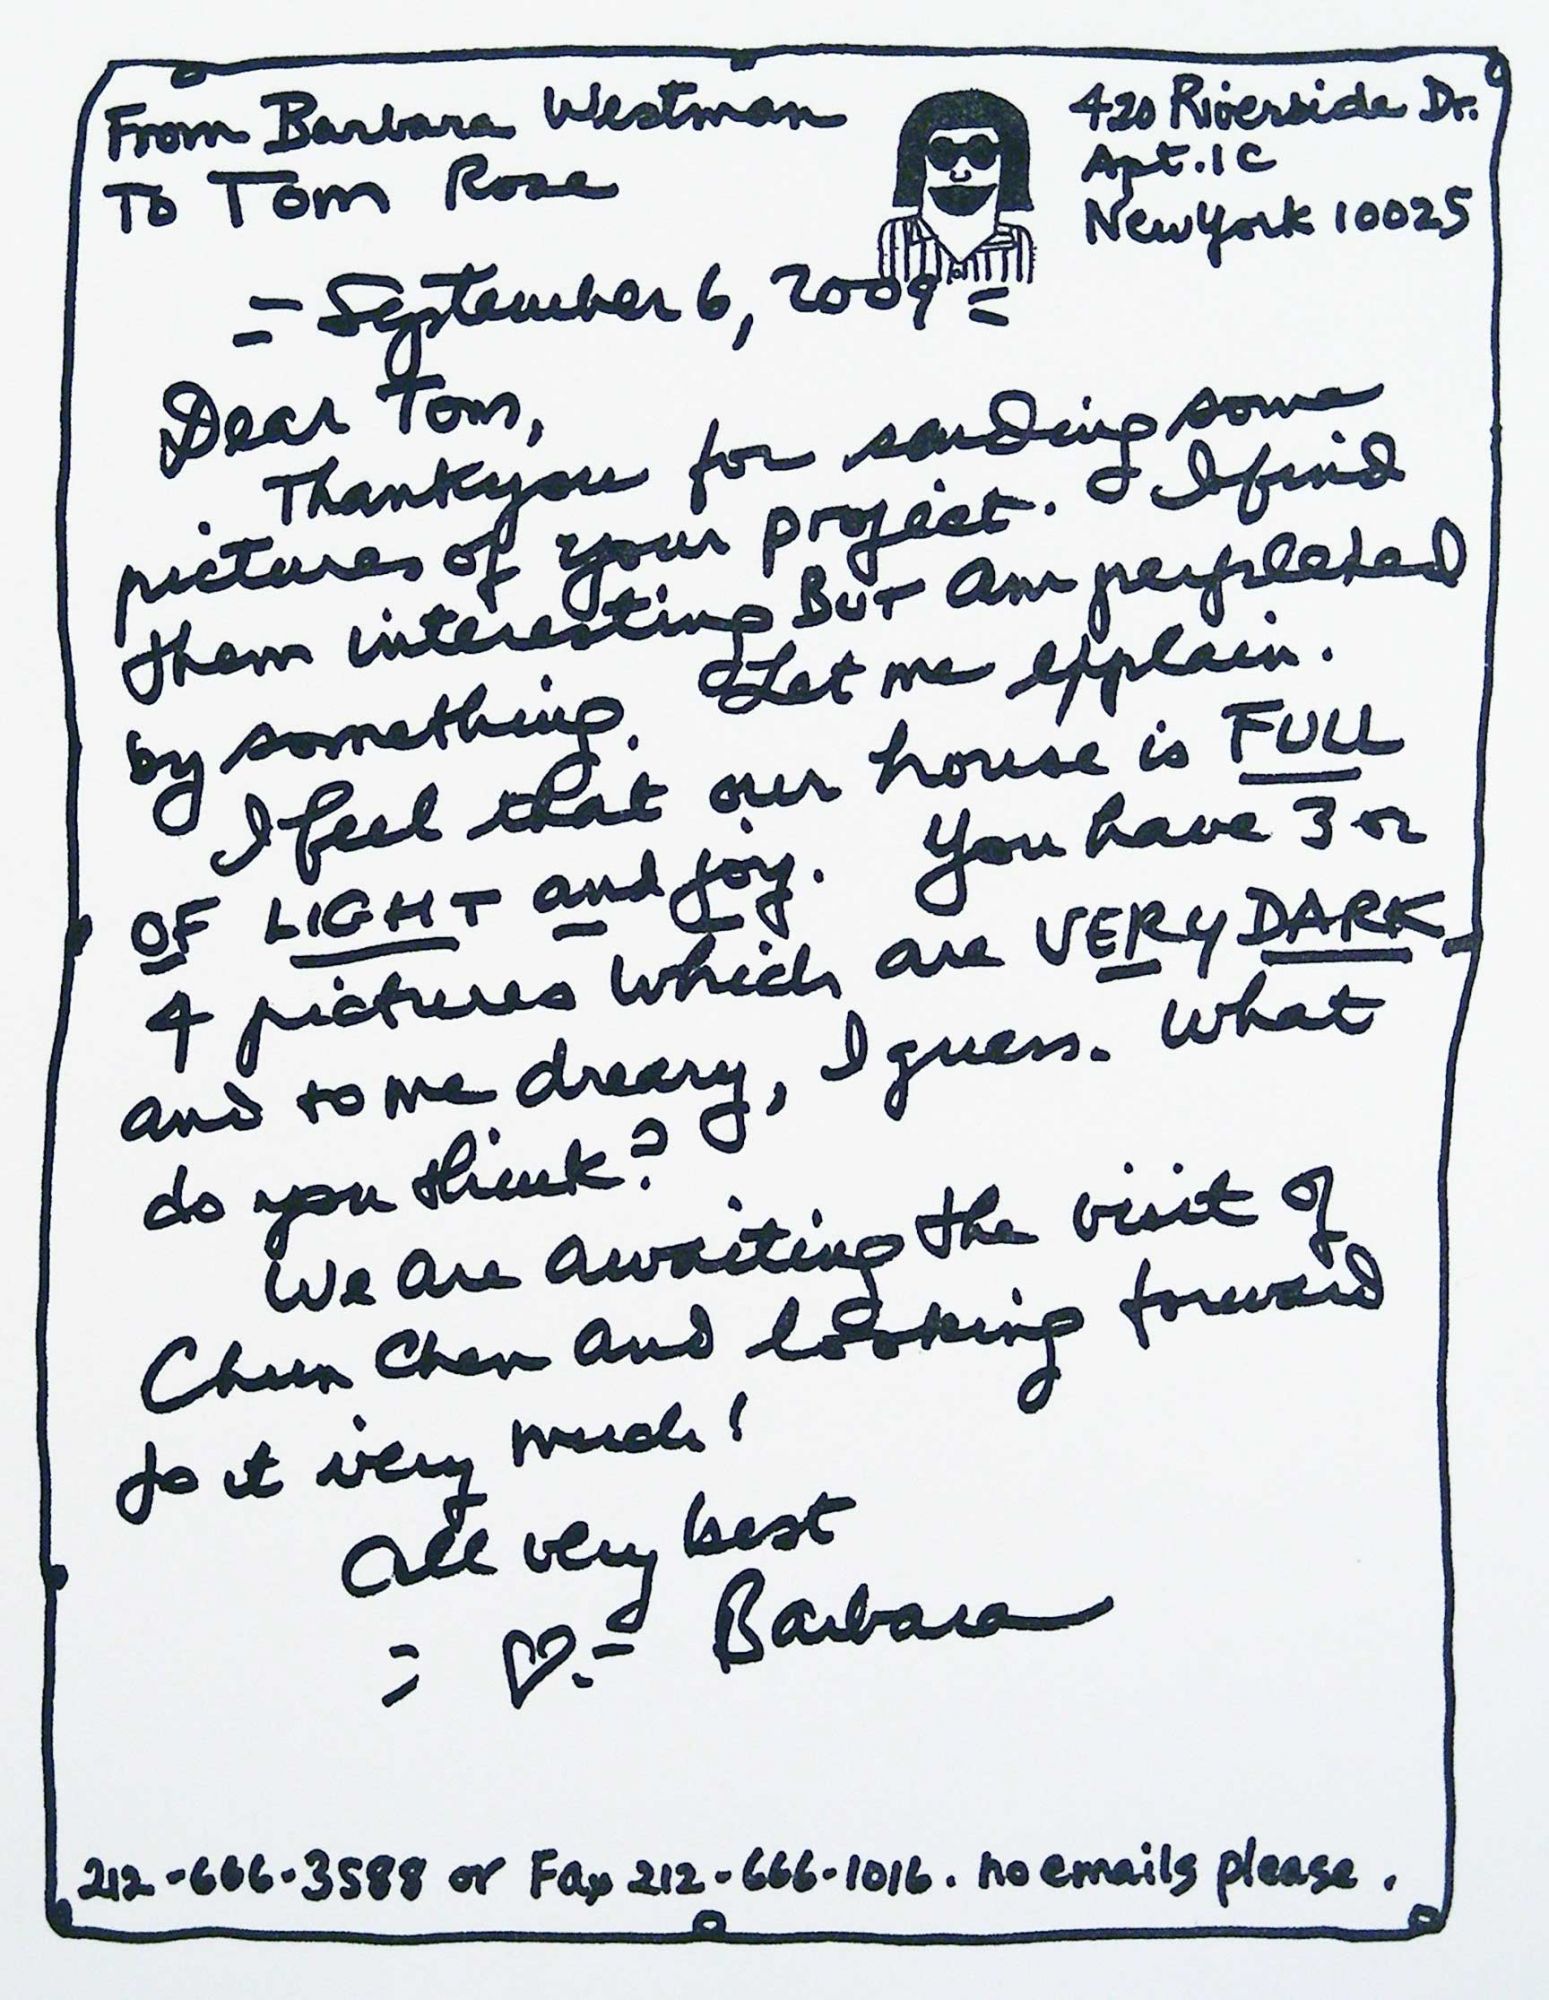 From Barbara Westman
To Tom Rose
420 Riverside Dr.
Apt. 1C
New York 10025
= September 6, 2009 =
Dear Tom,
Thankyou for sending some
pictures of your project. I find
them interesting BUT am perplexed
by something. Let me explain.
I feel that our house is FULL
OF LIGHT and joy. You have 3 or
4 pictures which are VERY DARK
and to me dreary, I guess. What
do you think?
We are awaiting the visit of
Chun Chen and looking forward
to it very much!
All very best
= ♡.= Barbara
212-666-3588 or Fax 212-666-1016. no emails please.